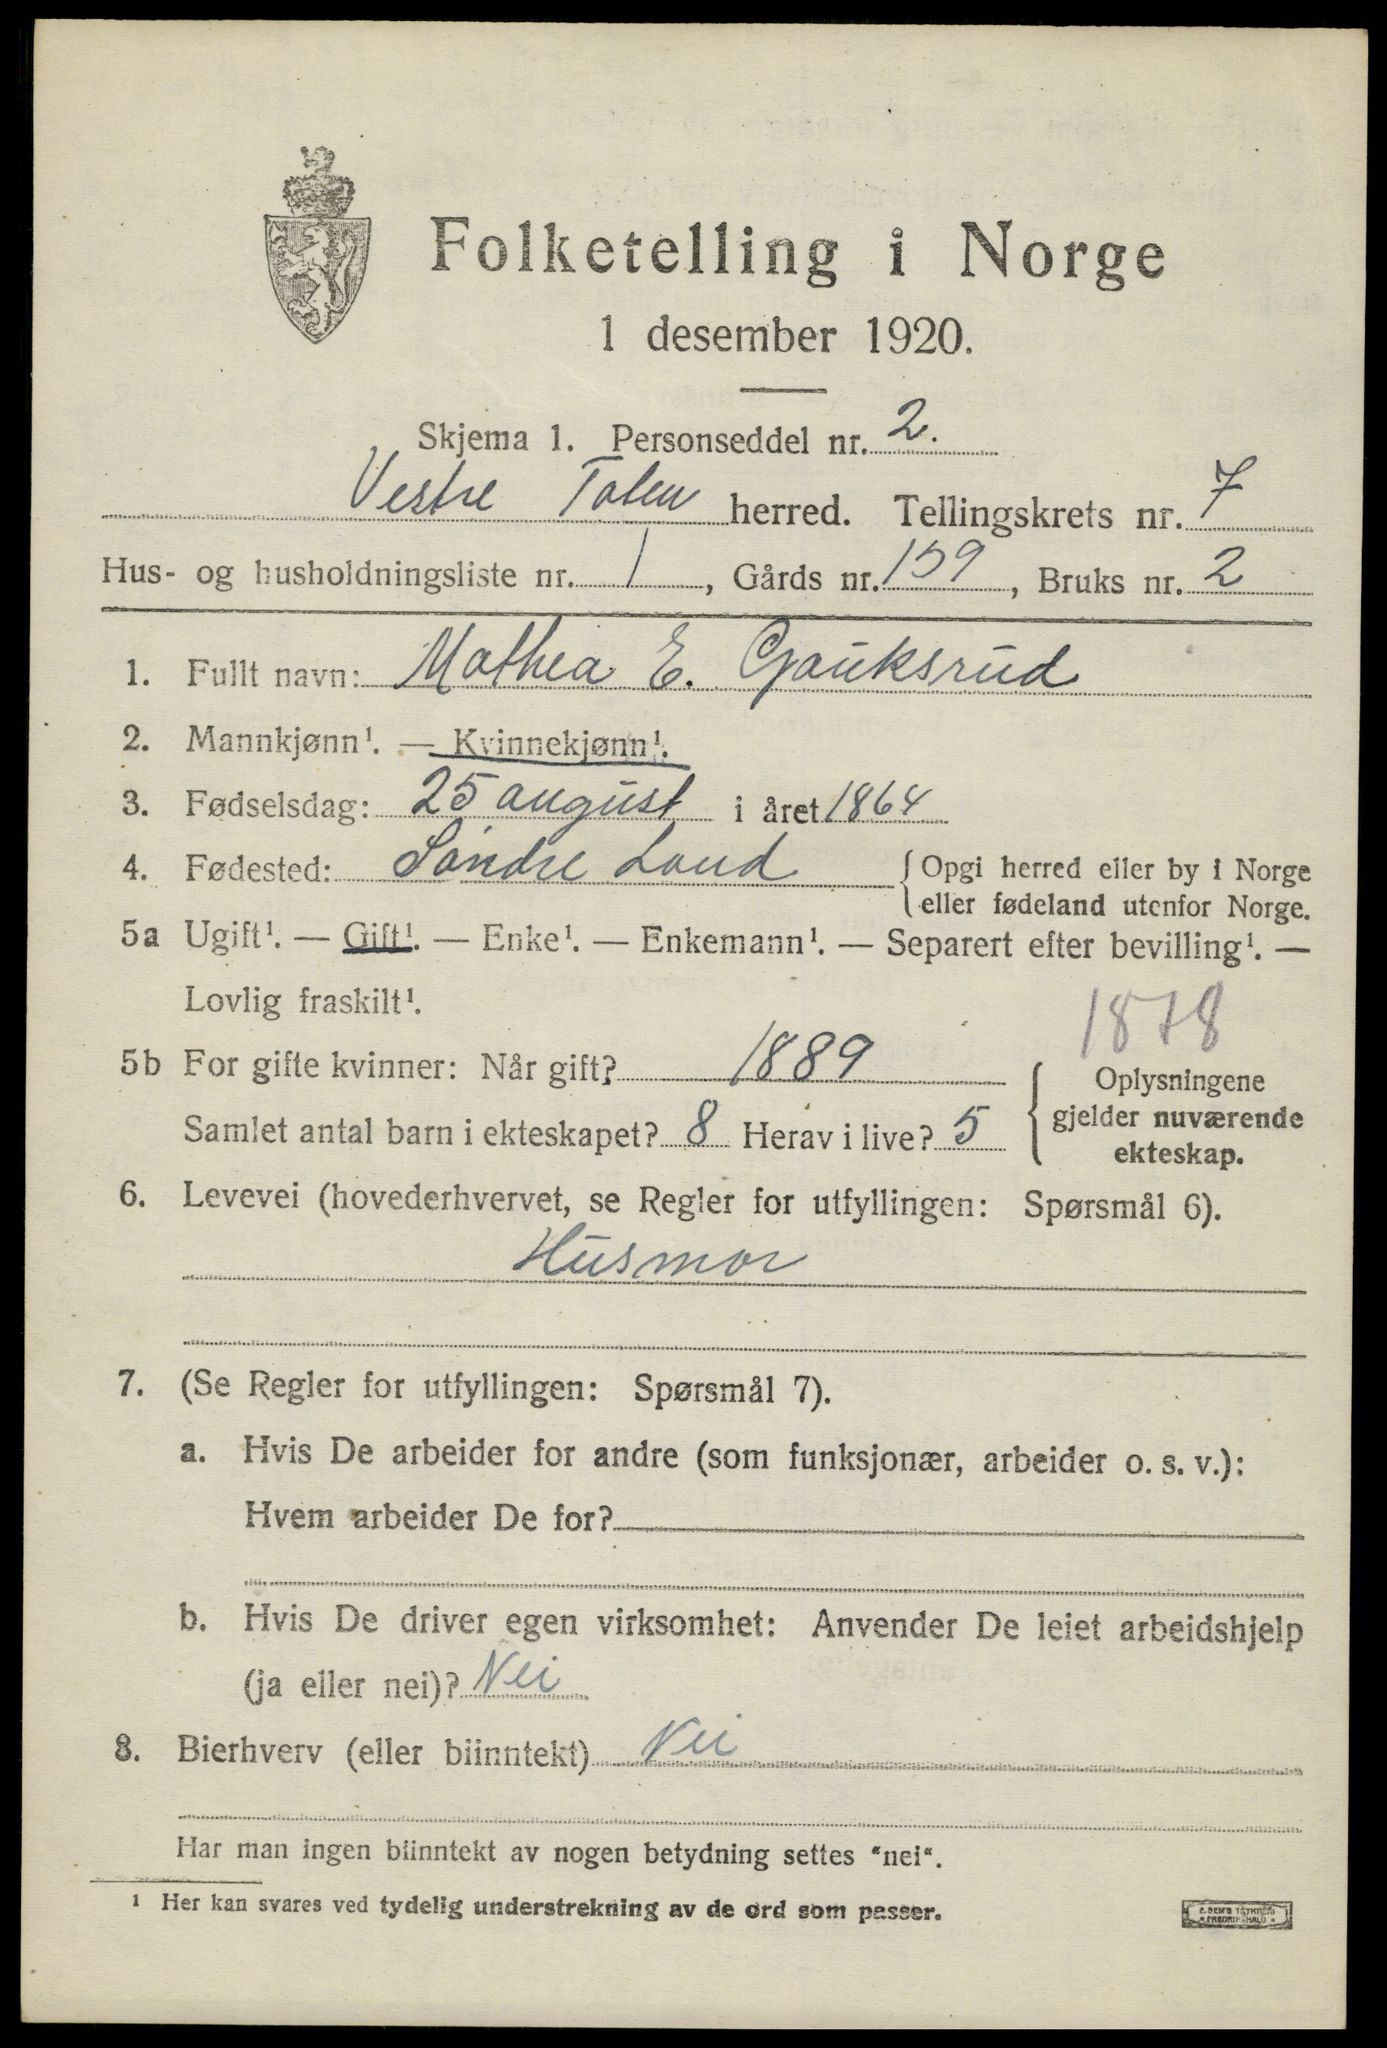 Folketelling i Norge
1 desember 1920.
Skjema 1. Personseddel nr. 2.
Vestre Toten herred. Tellingskrets nr. 7
Hus- og husholdningsliste nr. 1, Gårds nr. 159, Bruks nr. 2
1. Fullt navn: Mathea E. Gauksrud
2. Mannkjønn¹. — Kvinnekjønn¹.
3. Fødselsdag: 25 august i året 1864
4. Fødested: Söndre Land { Opgi herred eller by i Norge
eller fødeland utenfor Norge.
5a Ugift¹. — Gift¹. — Enke¹. — Enkemann¹. — Separert efter bevilling¹. —
Lovlig fraskilt¹.
1878
5b For gifte kvinner: Når gift? 1889
Samlet antal barn i ekteskapet? 8 Herav i live? 5
Oplysningene
gjelder nuværende
ekteskap.
6. Levevei (hovederhvervet, se Regler for utfyllingen: Spørsmål 6).
Husmor
7. (Se Regler for utfyllingen: Spørsmål 7).
a. Hvis De arbeider for andre (som funksjonær, arbeider o. s. v.):
Hvem arbeider De for?
b. Hvis De driver egen virksomhet: Anvender De leiet arbeidshjelp
(ja eller nei)? Nei
8. Bierhverv (eller biinntekt) Nei
Har man ingen biinntekt av nogen betydning settes "nei".
¹ Her kan svares ved tydelig understrekning av de ord som passer.